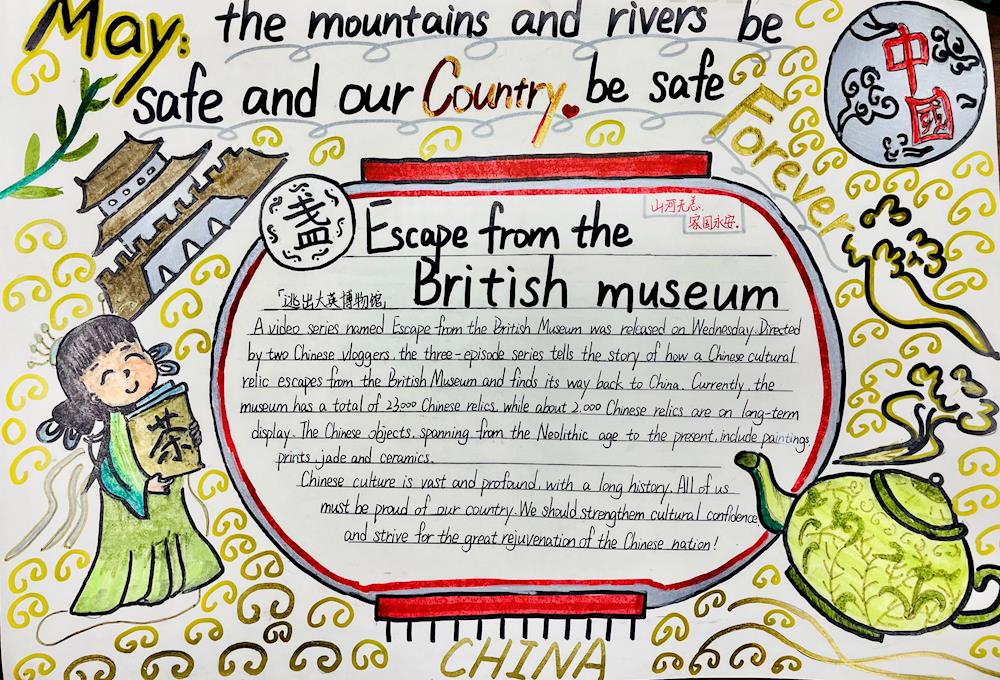 May: the mountains and rivers be
safe and our Country be safe
Forever
中
國
盏
Escape from the
山河无恙,
家国永安.
British museum
「逃出大英博物馆」
A video series named Escape from the British Museum was released on Wednesday. Directed
by two Chinese vloggers. the three-episode series tells the story of how a Chinese cultural
relic escapes from the British Museum and finds its way back to China. Currently, the
museum has a total of 23000 Chinese relics, while about 2,000 Chinese relics are on long-term
display. The Chinese objects, spanning from the Neolithic age to the present, include paintings,
prints, jade and ceramics.
Chinese culture is vast and profound, with a long history. All of us
must be proud of our country. We should strengthem cultural confidence,
and strive for the great rejuvenation of the Chinese nation!
茶
CHINA